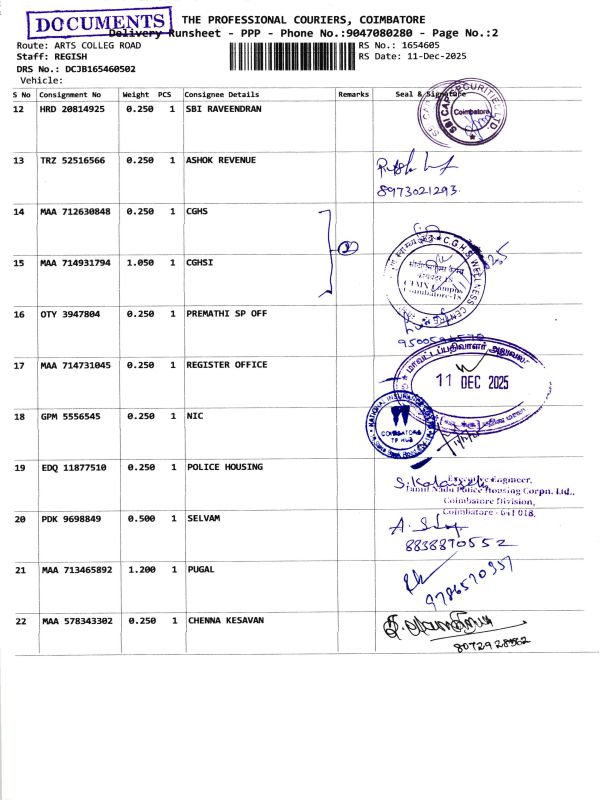 DOCUMENTS
THE PROFESSIONAL COURIERS, COIMBATORE
Delivery Runsheet - PPP - Phone No.:9047080280 - Page No.:2
Route: ARTS COLLEG ROAD
RS No.: 1654605
Staff: REGISH
RS Date: 11-Dec-2025
DRS No.: DCJB165460502
Vehicle:
S No Consignment No Weight PCS Consignee Details Remarks Seal & Signature
12 HRD 20814925 0.250 1 SBI RAVEENDRAN
Coimbatore
13 TRZ 52516566 0.250 1 ASHOK REVENUE
8973021293
14 MAA 712630848 0.250 1 CGHS
2
15 MAA 714931794 1.050 1 CGHSI
C.G.H.S WELLNESS CENTRE
16 OTY 3947804 0.250 1 PREMATHI SP OFF
17 MAA 714731045 0.250 1 REGISTER OFFICE
மாவட்டப்பதிவாளர் அலுவலகம்
11 DEC 2025
18 GPM 5556545 0.250 1 NIC
COIMBATORE
TP HUB
19 EDQ 11877510 0.250 1 POLICE HOUSING
Executive Engineer,
Tamil Nadu Police Housing Corpn. Ltd.,
Coimbatore Division,
Coimbatore - 641 018.
20 PDK 9698849 0.500 1 SELVAM
8838870552
21 MAA 713465892 1.200 1 PUGAL
9786570957
22 MAA 578343302 0.250 1 CHENNA KESAVAN
8072928562